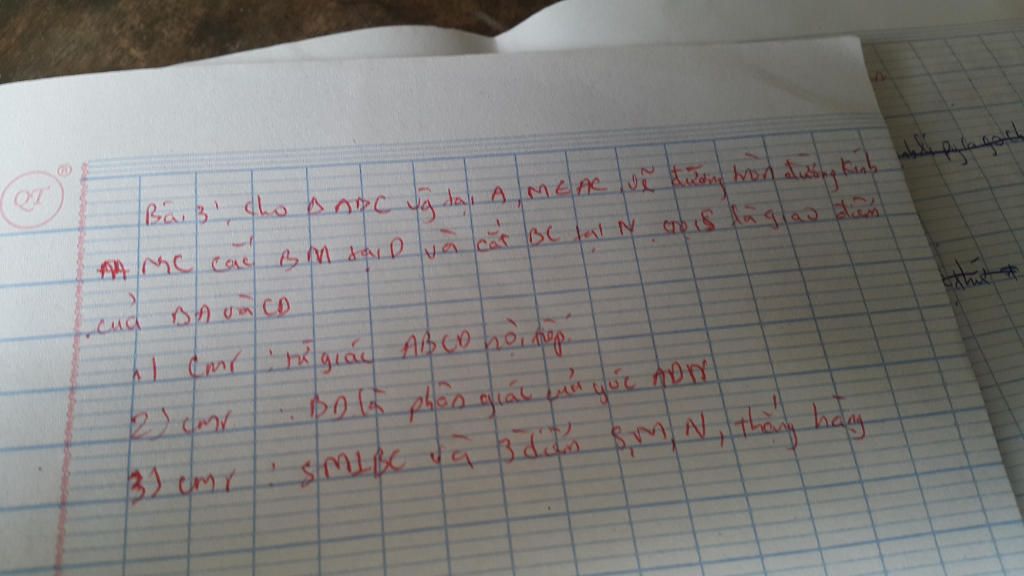 QT
Bài 3: Cho Δ ABC vg tại A, M ∈ AC, vẽ đường tròn đường kính
MC cắt BM tại D và cắt BC tại N. gọi S là giao điểm
của BA và CD
1) Cmr : tứ giác ABCD nội tiếp.
2) cmr : BD là phân giác của góc ADN
3) cmr : SM⊥BC và 3 điểm S, M, N, thẳng hàng